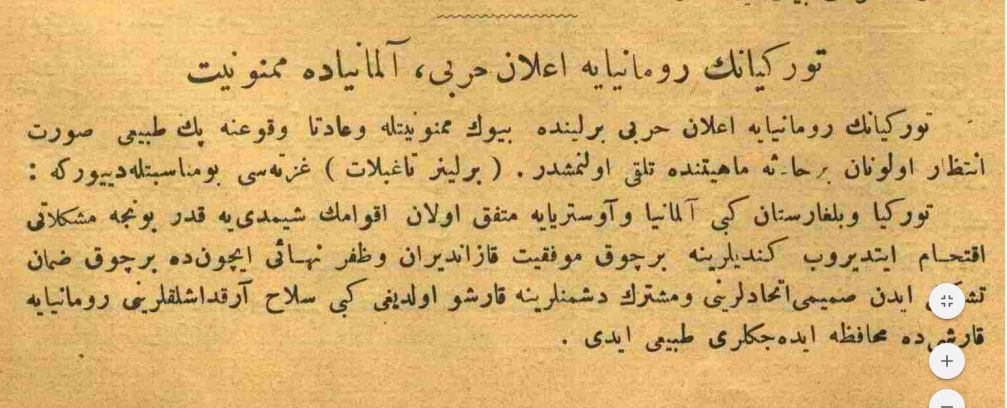 توركيانك رومانيايه اعلان حربى، آلمانياده ممنونيت
توركيانك رومانيايه اعلان حربى برلينده بيوك ممنونيتله وعادتا وقوعنه پك طبيعى صورت
انتظار اولونان بر حادثه ماهيتنده تلقى اولنمشدر . ( برلينر تاغبلات ) غزته‌سى بومناسبتله‌دييوركه :
توركيا وبلغارستان كبى آلمانيا وآوسترياىه متفق اولان اقوامك شيمدى‌يه قدر بونجه مشكلاتى
اقتحام ايتديروب كنديلرينه برچوق موفقيت قازانديران وظفر نهائى ايچون‌ده برچوق ضمان
ايدن صميمى اتحادلرينى ومشترك دشمنلرينه قارشو اولديغى كبى سلاح آرقداشلقلرينى رومانيايه
قارشى‌ده محافظه ايده‌جكلرى طبيعى ايدى .